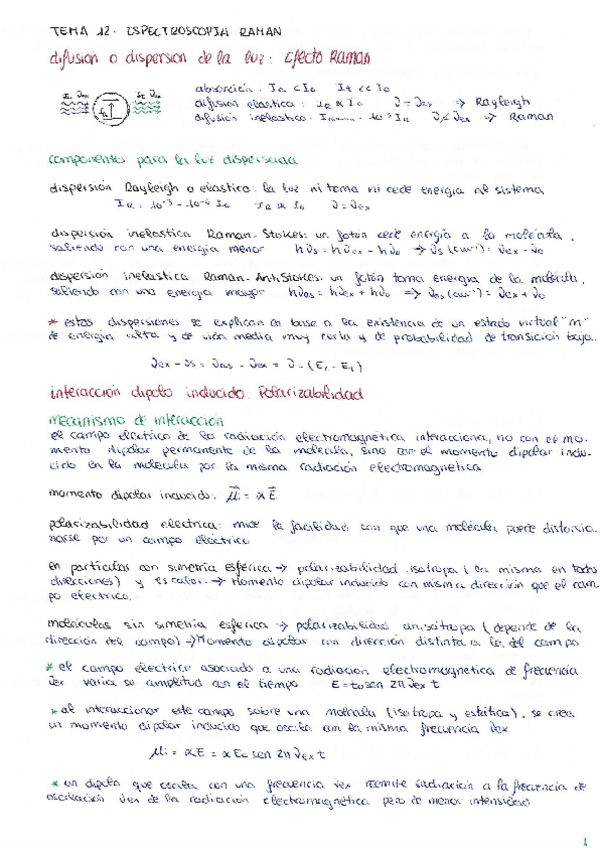 TEMA 12. ESPECTROSCOPIA RAMAN
difusión o dispersion de la luz: Efecto Raman
absorción. In < Io It << Io
difusión elástica: IR ∝ Io ν = νex => Rayleigh
difusión inelastica. IRaman ~ 10⁻³ IR => Raman
componentes para la luz dispersada
dispersión Rayleigh o elastica: la luz ni toma ni cede energía al sistema
IR ∝ Io ν = νex
dispersión inelastica Raman-Stokes: un foton cede energía a la molécula,
saliendo con una energía menor hνs = hνex - hν₀ => νs (cm⁻¹) = νex - ν₀
dispersión inelastica Raman-AntiStokes: un fotón toma energia de la molécula,
saliendo con una energia mayor hνas = hνex + hν₀ => νas (cm⁻¹) = νex + ν₀
* estas dispersiones se explican en base a la existencia de un estado virtual "m"
de energia alta y de vida media muy corta y de probabilidad de transicion baja.
νex - νs = νas - νex =
interacción dipolo inducido. Polarizabilidad
mecanismo de interacción
el campo electrico de la radiación electromagnética interacciona, no con el mo-
mento dipolar permanente de la molecula, sino con el momento dipolar indu-
cido en la molecula por la misma radiación electromagnetica
momento dipolar inducido: μ⃗i = αE⃗
polarizabilidad electrica: mide la facilidad con que una molécula puede distorsio-
narse por un campo eléctrico
en particulas con simetría esférica → polarizabilidad isotropa (la misma en todas
direcciones) y escalar. → Momento dipolar inducido con misma direccion que el cam-
po electrico.
moleculas sin simetria esferica → polarizabilidad anisotropa (depende de la
dirección del campo) → Momento dipolar con dirección distinta a la del campo
* el campo electrico asociado a una radiación electromagnetica de frecuencia
νex varia su amplitud con el tiempo E = Eo sen 2π νex t
* al interaccionar este campo sobre una molécula (isotropa y estática), se crea
un momento dipolar inducido que oscila con la misma frecuencia νex
μi = αE = αEo sen 2π νex t
* un dipolo que oscila con una frecuencia νex reemite radiación a la frecuencia de
oscilación νex de la radiación electromagnética pero de menor intensidad
1